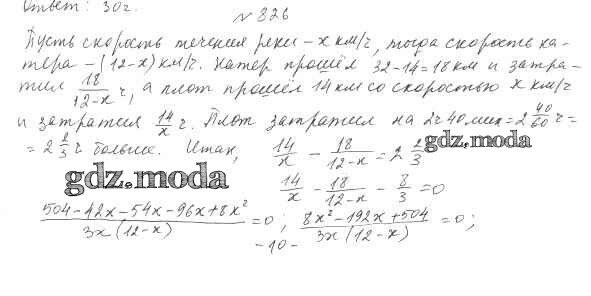 Ответ: 30г.
№ 826
Пусть скорость течения реки - x км/ч, тогда скорость ка-
тера - (12-x) км/ч. Катер прошёл 32-14=18 км и затра-
тил 18/12-x ч, а плот прошёл 14 км со скоростью x км/ч
и затратил 14/x ч. Плот затратил на 2ч 40 мин = 2 40/60 ч =
= 2 2/3 ч больше. Итак, 14/x - 18/12-x = 2 2/3
gdz.moda
gdz.moda
14/x - 18/12-x - 8/3 = 0
504-42x-54x-96x+8x²/3x(12-x) = 0; 8x²-192x+504/3x(12-x) = 0;
-10-